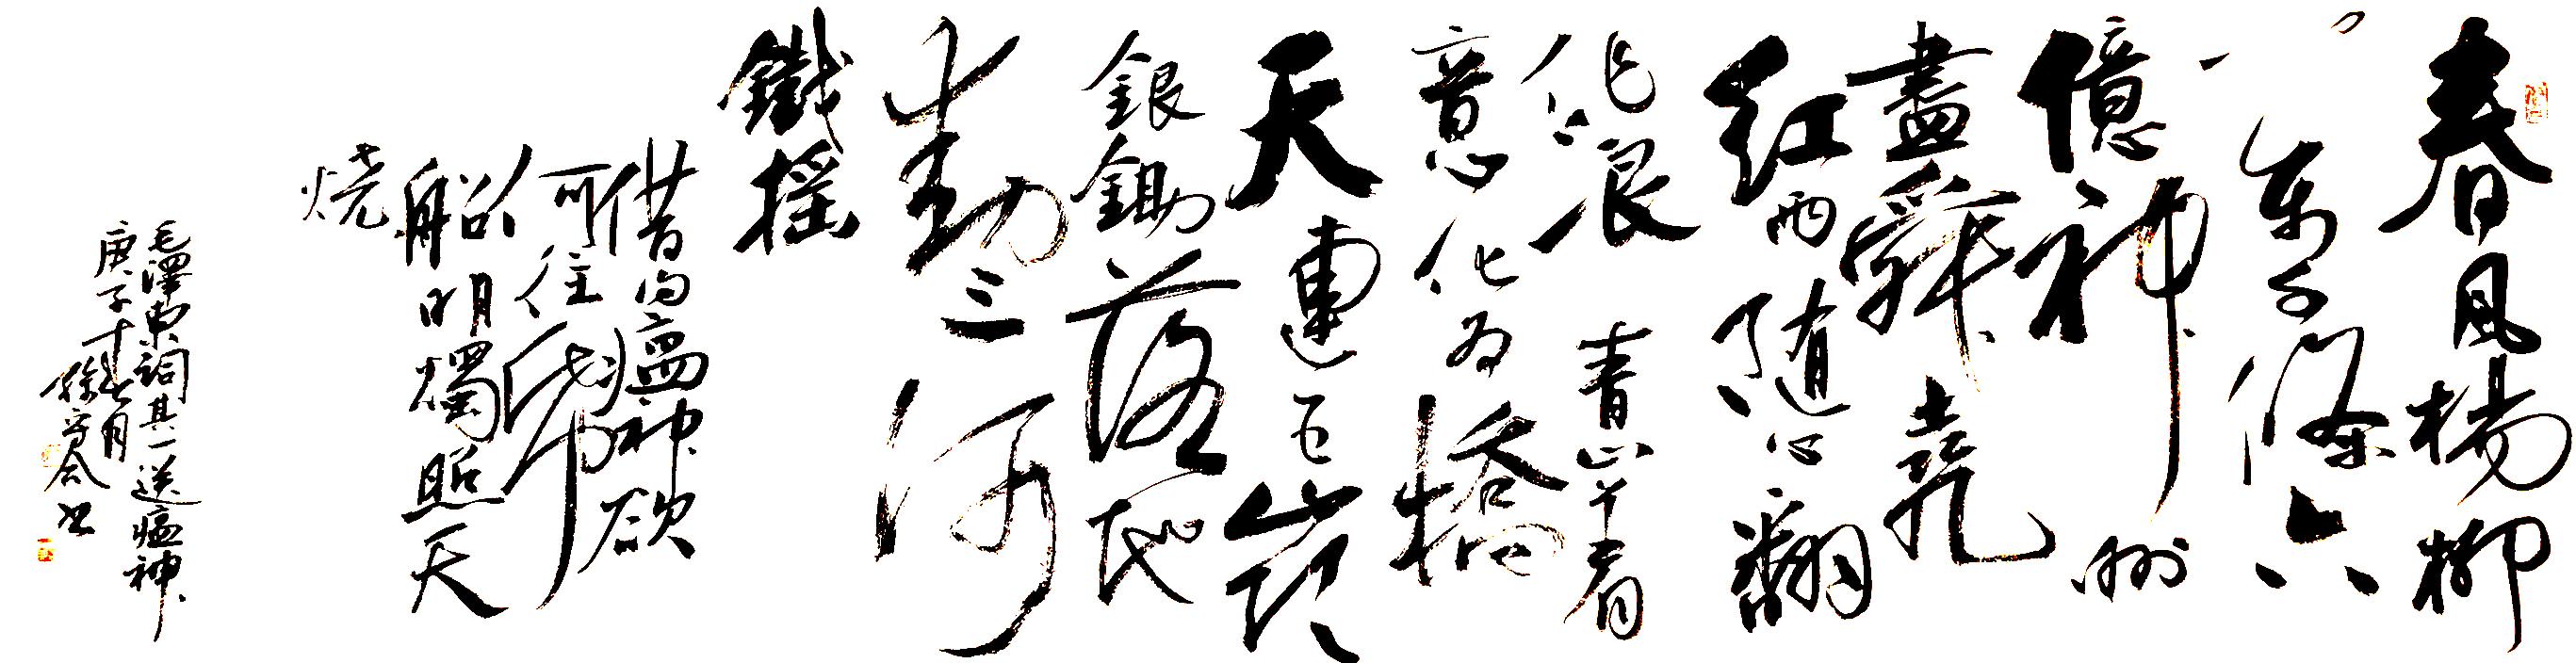 春風楊柳
萬千條六
億神州
盡舜堯
紅雨随心翻
作浪青山着
意化为橋
天連五嶺
銀鋤落地
動三河
鐵摇
借问瘟神欲
可往帋
船明燭照天
烧
毛澤東詞其一送瘟神
庚子年七月